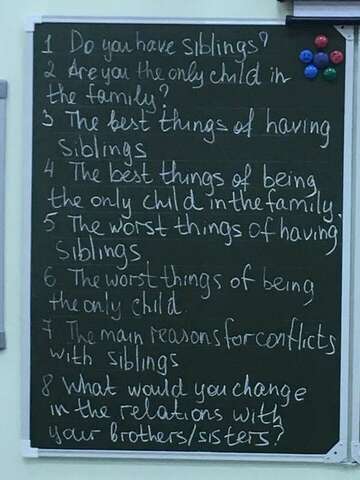 1 Do you have siblings?
2 Are you the only child in
the family?
3 The best things of having
siblings
4 The best things of being
the only child in the family.
5 The worst things of having
siblings
6 The worst things of being
the only child.
7 The main reasons for conflicts
with siblings
8 What would you change
in the relations with
your brothers/sisters?